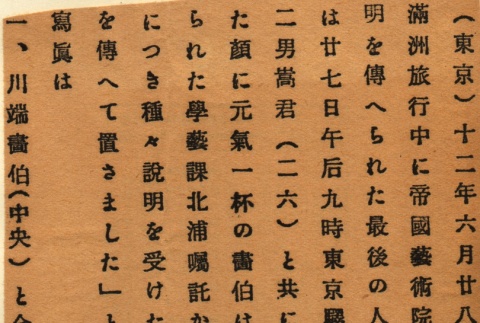 (東京)十二年六月廿八
滿洲旅行中に帝國藝術院
明を傳へられた最後の人
は廿七日午后九時東京驛
二男嵩君(二六)と共に
た顔に元氣一杯の畫伯は
られた學藝課北浦囑託か
につき種々說明を受けた
を傳へて置きました」と
寫眞は
一、川端畫伯(中央)と令